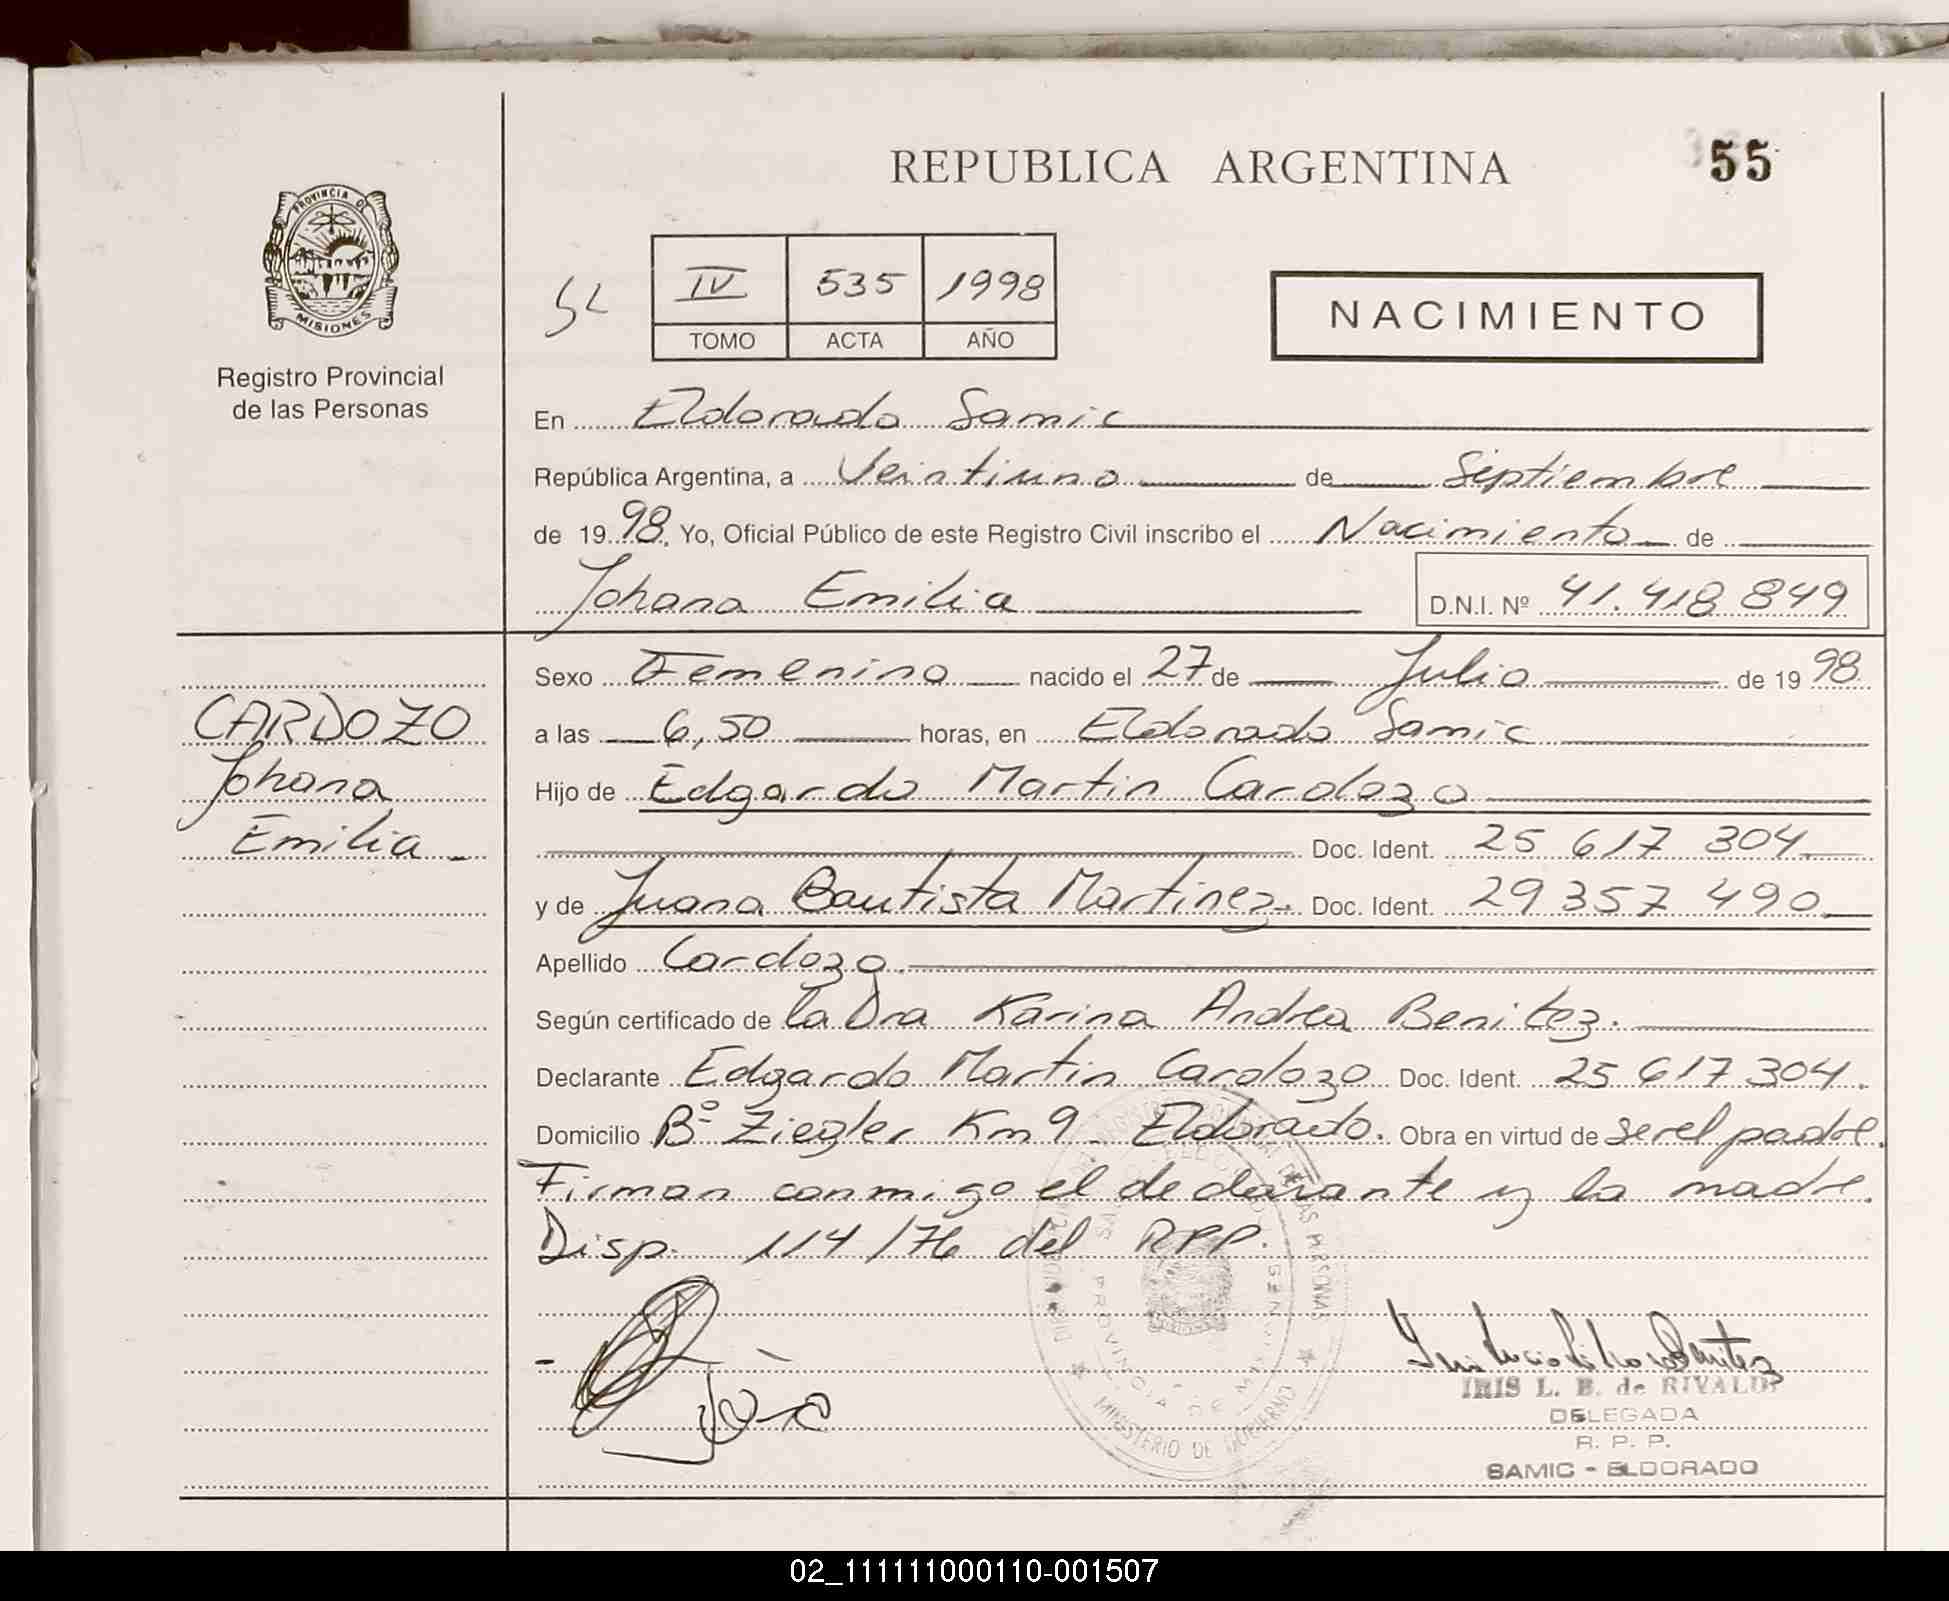 REPUBLICA ARGENTINA
55
PROVINCIA DE
MISIONES
Registro Provincial
de las Personas
IV 535 1998
TOMO ACTA AÑO
NACIMIENTO
En Eldorado Samic
República Argentina, a Veintiuno de Septiembre
de 1998, Yo, Oficial Público de este Registro Civil inscribo el Nacimiento de
Johana Emilia D.N.I. Nº 41.418 849
CARDOZO
Johana
Emilia
Sexo Femenino nacido el 27 de Julio de 1998
a las 6,50 horas, en Eldorado Samic
Hijo de Edgardo Martin Cardozo
Doc. Ident. 25 617 304
y de Juana Bautista Martinez. Doc. Ident. 29 357 490
Apellido Cardozo
Según certificado de la Dra Karina Andrea Benitez.
Declarante Edgardo Martin Cardozo Doc. Ident. 25 617 304.
Domicilio Bº Ziegler Km 9 - Eldorado. Obra en virtud de ser el padre.
Firman conmigo el declarante y la madre.
Disp. 114/76 del RPP.
IRIS L. B. de RIVALDI
DELEGADA
R. P. P.
SAMIC - ELDORADO
MINISTERIO DE GOBIERNO
02_111111000110-001507